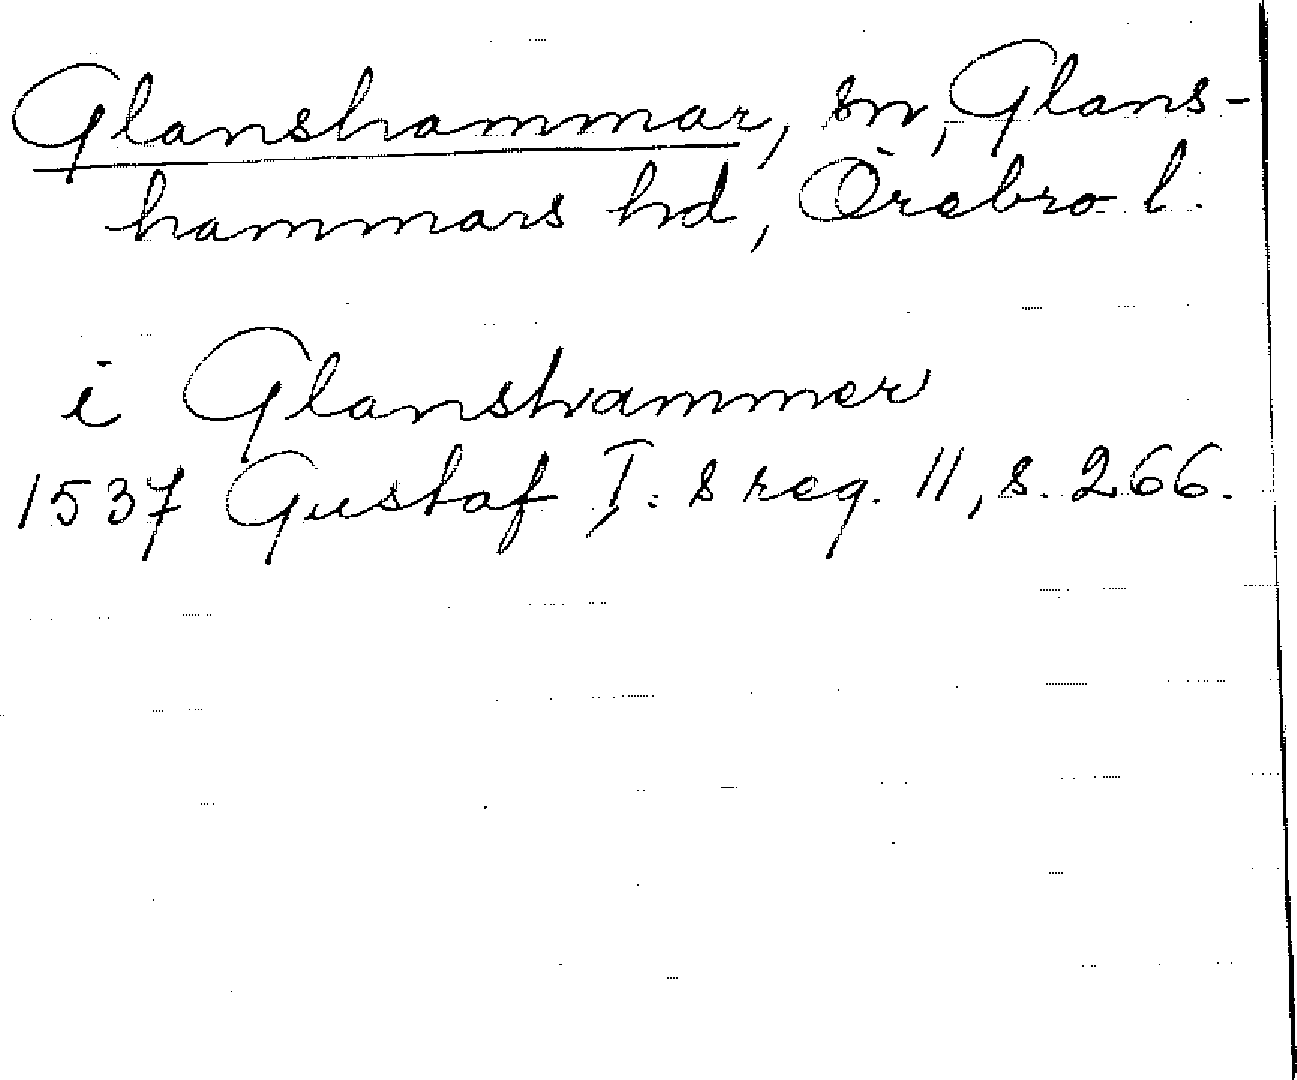 Glanshammar, sn, Glans-
hammars hd, Örebro l.
i Glanshammer
1537 Gustaf I:s reg. 11, s. 266.